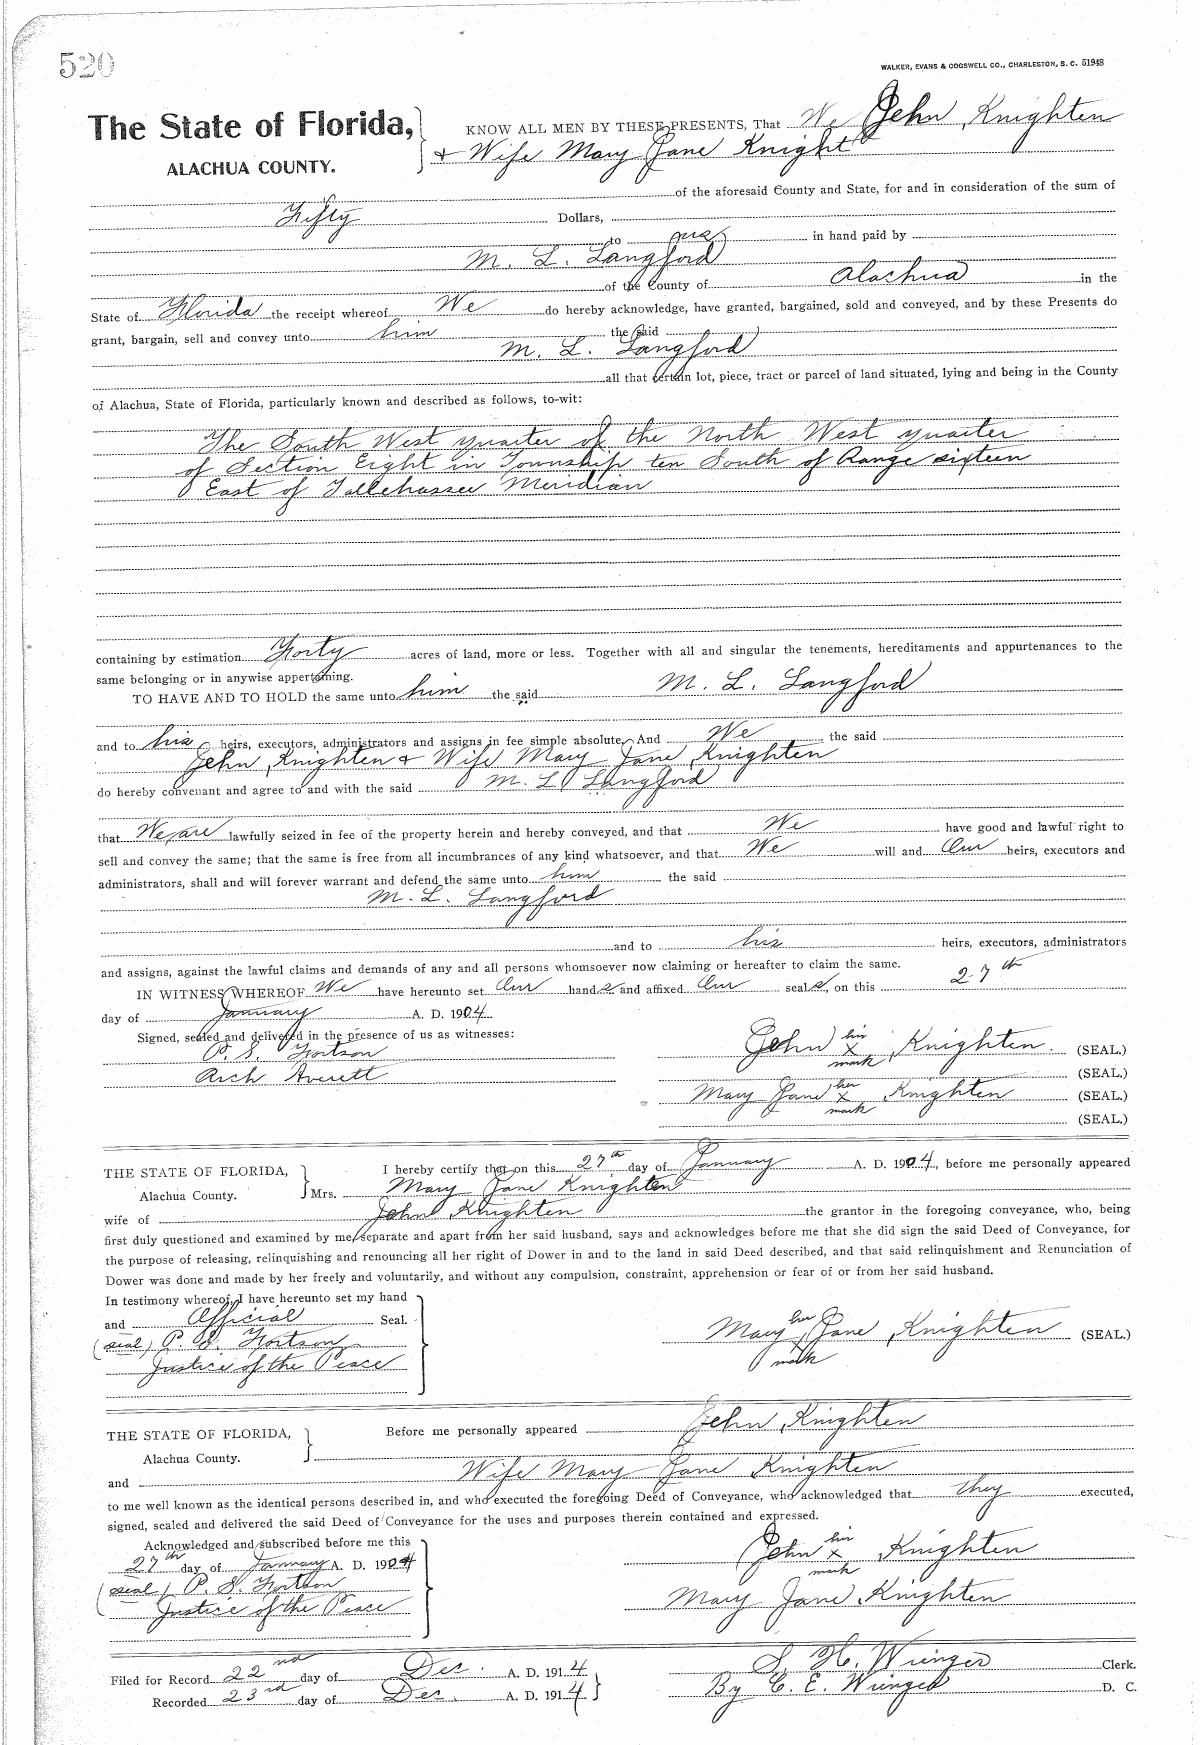 520
WALKER, EVANS & COGSWELL CO., CHARLESTON, S. C. 51948
The State of Florida,
ALACHUA COUNTY.
KNOW ALL MEN BY THESE PRESENTS, That We John Knighten
& Wife Mary Jane Knight
of the aforesaid County and State, for and in consideration of the sum of
Fifty Dollars,
to us in hand paid by
M. L. Langford
of the County of Alachua in the
State of Florida the receipt whereof We do hereby acknowledge, have granted, bargained, sold and conveyed, and by these Presents do
grant, bargain, sell and convey unto him the said
M. L. Langford
all that certain lot, piece, tract or parcel of land situated, lying and being in the County
of Alachua, State of Florida, particularly known and described as follows, to-wit:
The South West quarter of the North West quarter
of Section Eight in Township ten South of Range sixteen
East of Tallehassee Meridian
containing by estimation Forty acres of land, more or less. Together with all and singular the tenements, hereditaments and appurtenances to the
same belonging or in anywise appertaining.
TO HAVE AND TO HOLD the same unto him the said M. L. Langford
and to his heirs, executors, administrators and assigns in fee simple absolute. And We the said
John Knighten & Wife Mary Jane Knighten
do hereby convenant and agree to and with the said M. L. Langford
that We are lawfully seized in fee of the property herein and hereby conveyed, and that We have good and lawful right to
sell and convey the same; that the same is free from all incumbrances of any kind whatsoever, and that We will and Our heirs, executors and
administrators, shall and will forever warrant and defend the same unto him the said
M. L. Langford
and to his heirs, executors, administrators
and assigns, against the lawful claims and demands of any and all persons whomsoever now claiming or hereafter to claim the same.
IN WITNESS WHEREOF We have hereunto set Our hands and affixed Our seals, on this 27th
day of January A. D. 1904.
Signed, sealed and delivered in the presence of us as witnesses:
P. S. Fortson
Arch Averett
John his x mark Knighten. (SEAL.)
(SEAL.)
Mary Jane her x mark Knighten (SEAL.)
(SEAL.)
THE STATE OF FLORIDA,
Alachua County.
I hereby certify that on this 27th day of January A. D. 1904, before me personally appeared
Mrs. Mary Jane Knighten
wife of John Knighten the grantor in the foregoing conveyance, who, being
first duly questioned and examined by me, separate and apart from her said husband, says and acknowledges before me that she did sign the said Deed of Conveyance, for
the purpose of releasing, relinquishing and renouncing all her right of Dower in and to the land in said Deed described, and that said relinquishment and Renunciation of
Dower was done and made by her freely and voluntarily, and without any compulsion, constraint, apprehension or fear of or from her said husband.
In testimony whereof, I have hereunto set my hand
and Official Seal.
(seal) P. S. Fortson
Justice of the Peace
Mary her x mark Jane Knighten (SEAL.)
THE STATE OF FLORIDA,
Alachua County.
Before me personally appeared John Knighten
and Wife Mary Jane Knighten
to me well known as the identical persons described in, and who executed the foregoing Deed of Conveyance, who acknowledged that they executed,
signed, sealed and delivered the said Deed of Conveyance for the uses and purposes therein contained and expressed.
Acknowledged and subscribed before me this
27th day of January A. D. 1904
(seal) P. S. Fortson
Justice of the Peace
John his x mark Knighten
Mary Jane Knighten
Filed for Record 22nd day of Dec. A. D. 1914
Recorded 23rd day of Dec. A. D. 1914
S. H. Wienges Clerk.
By C. E. Wienges D. C.